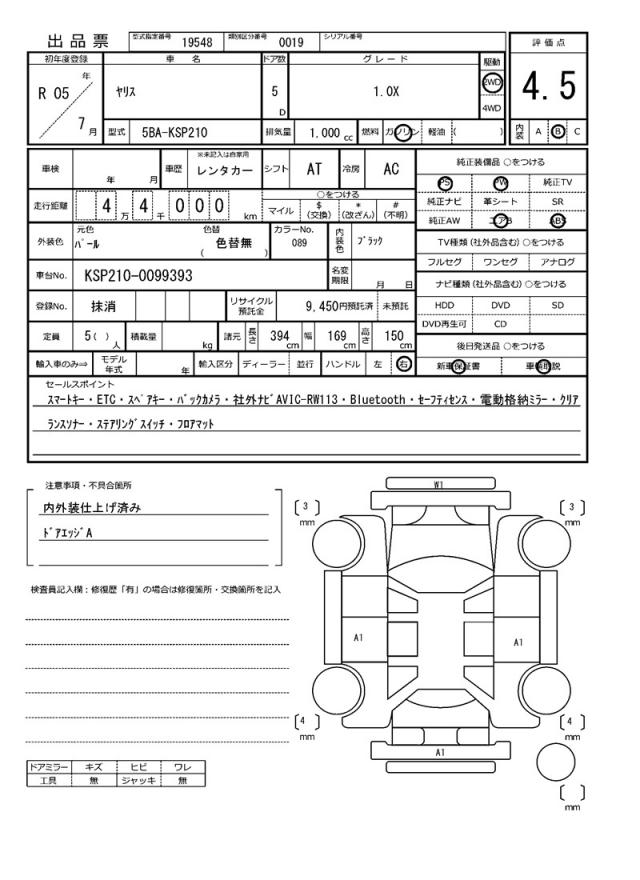 出品票 型式指定番号 19548 類別区分番号 0019 シリアル番号
初年度登録 車名 ドア数 グレード 駆動 評価点
R 05 年 7 月 ヤリス 5 D 1.0X 2WD 4WD 4.5
型式 5BA-KSP210 排気量 1.000 cc 燃料 ガソリン 軽油 ( ) 内装 A B C
車検 年 月 車歴 ※未記入は自家用 レンタカー シフト AT 冷房 AC 純正装備品 ○をつける
PS PW 純正TV
走行距離 4 万 4 千 0 0 0 km ○をつける 純正ナビ 革シート SR
マイル $ (交換) * (改ざん) # (不明) 純正AW エアB ABS
外装色 元色 パール 色替 色替無 ( ) カラーNo. 089 内装色 ブラック TV種類 (社外品含む) ○をつける
フルセグ ワンセグ アナログ
車台No. KSP210-0099393 名変期限 月 日 ナビ種類 (社外品含む) ○をつける
登録No. 抹消 リサイクル預託金 9,450円預託済 未預託 HDD DVD SD
DVD再生可 CD
定員 5( ) 人 積載量 kg 諸元 長さ 394 cm 幅 169 cm 高さ 150 cm 後日発送品 ○をつける
輸入車のみ⇒ モデル年式 年 輸入区分 ディーラー 並行 ハンドル 左 右 新車保証書 車輌取説
セールスポイント
スマートキー・ETC・スペアキー・バックカメラ・社外ナビAVIC-RW113・Bluetooth・セーフティセンス・電動格納ミラー・クリア
ランスソナー・ステアリングスイッチ・フロアマット
注意事項・不具合箇所
内外装仕上げ済み
ドアエッジA
検査員記入欄：修復歴「有」の場合は修復箇所・交換箇所を記入
W1
[ 3 ] mm [ 3 ] mm
A1 A1
[ 4 ] mm [ 4 ] mm
A1
[ ] mm
ドアミラー キズ ヒビ ワレ
工具 無 ジャッキ 無